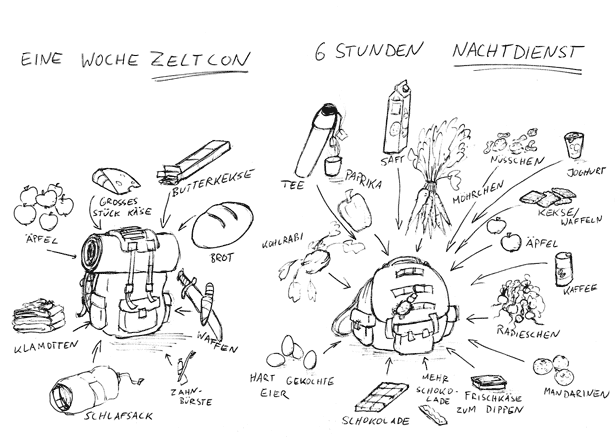 EINE WOCHE ZELTCON
GROSSES
STÜCK KÄSE
BUTTERKEKSE
ÄPFEL
BROT
KLAMOTTEN
WAFFEN
SCHLAFSACK
ZAHN-
BÜRSTE
6 STUNDEN NACHTDIENST
TEE
PAPRIKA
SAFT
MÖHRCHEN
NÜSSCHEN
JOGHURT
KEKSE/
WAFFELN
KOHLRABI
ÄPFEL
KAFFEE
RADIESCHEN
HART GEKOCHTE
EIER
SCHOKOLADE
MEHR
SCHOKO-
LADE
FRISCHKÄSE
ZUM DIPPEN
MANDARINEN